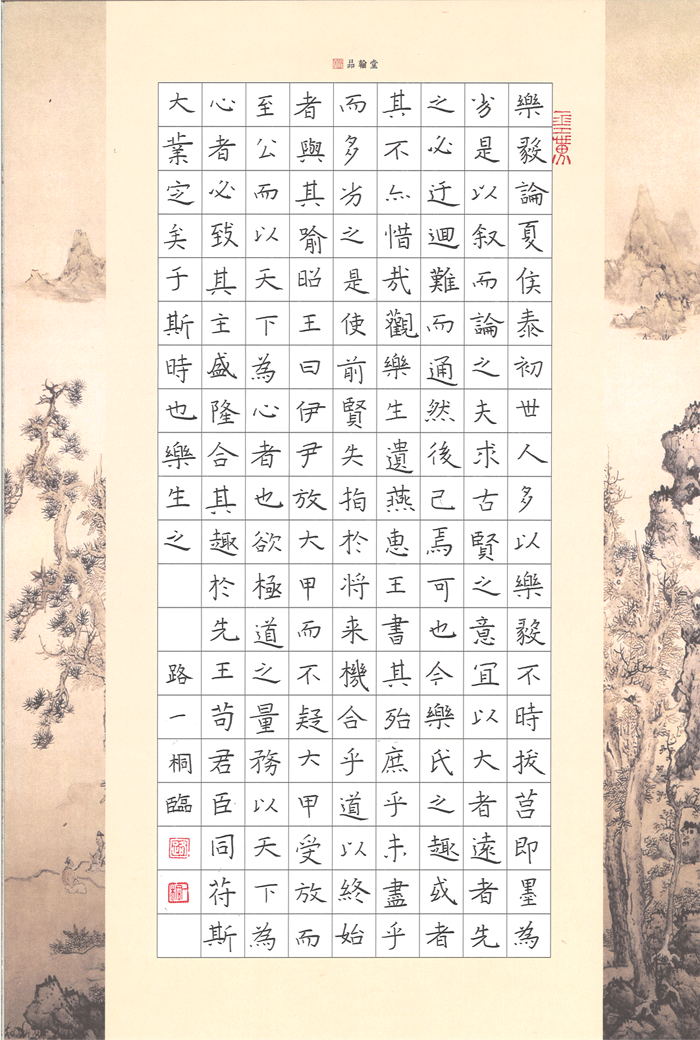 品翰堂
樂毅論夏侯泰初世人多以樂毅不時拔莒即墨為
劣是以叙而論之夫求古賢之意冝以大者遠者先
之必迂迴難而通然後已焉可也今樂氏之趣或者
其不亦惜哉觀樂生遺燕恵王書其殆庶乎未盡乎
而多劣之是使前賢失指於将来機合乎道以終始
者與其喻昭王曰伊尹放大甲而不疑大甲受放而
至公而以天下為心者也欲極道之量務以天下為
心者必致其主盛隆合其趣於先王苟君臣同苻斯
大業定矣于斯時也樂生之
路一桐臨